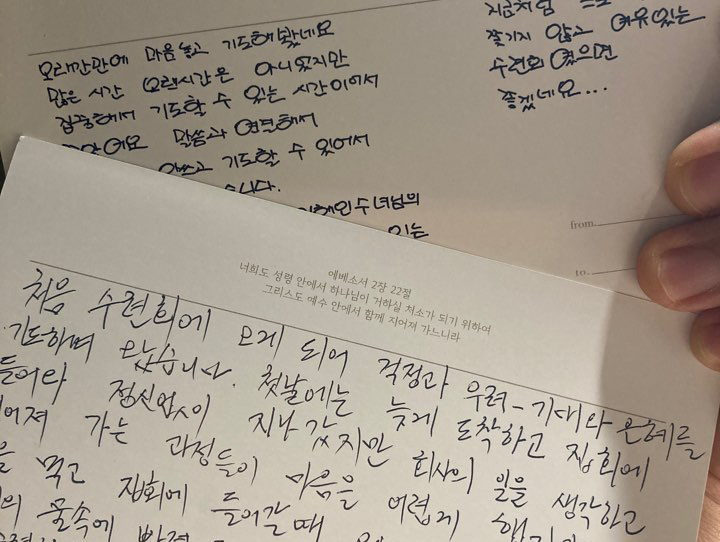 오래간만에 마음놓고 기도해봤네요
많은 시간 오랜시간은 아니었지만
집중해서 기도할 수 있는 시간이어서
말씀과 연결해서
기도할 수 있어서
수녀님의
있는
지금처럼
쫓기지 않고 여유있는
수련회 였으면
좋겠네요...
from.
to.
에베소서 2장 22절
너희도 성령 안에서 하나님이 거하실 처소가 되기 위하여
그리스도 예수 안에서 함께 지어져 가느니라
처음 수련회에 오게 되어 걱정과 우려-기대와 은혜를
기도하며 왔습니다. 첫날에는 늦게 도착하고 집회에
들어라 정신없이 지나 갔지만 회사의 일을 생각하고
가는 과정들이 마음을 어렵게
먹고 집회에 들어갈 때
물속에